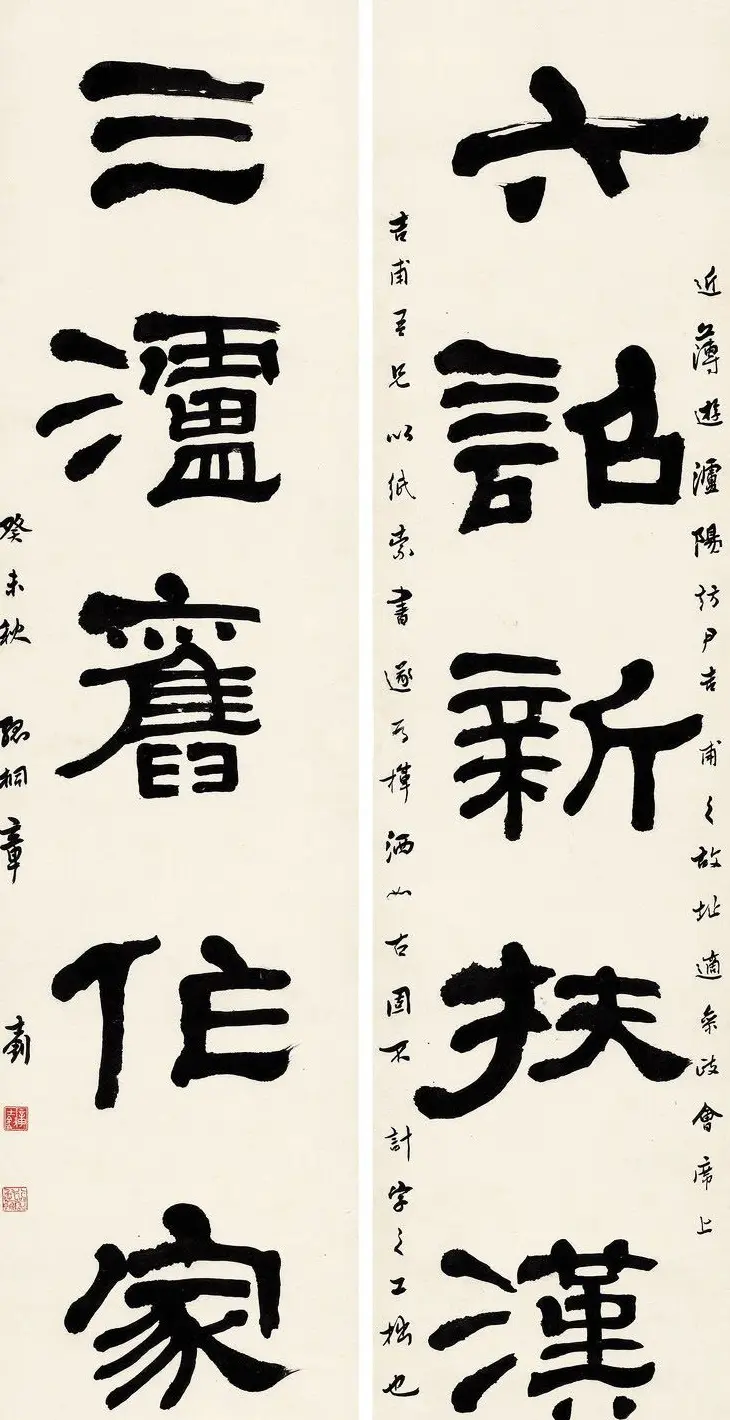 六詔新扶漢
近薄遊瀘陽訪尹吉甫之故址適參政會席上
吉甫吾兄以紙索書遂為揮洒如右固不計字之工拙也
三瀘舊作家
癸未秋 孤桐章士釗